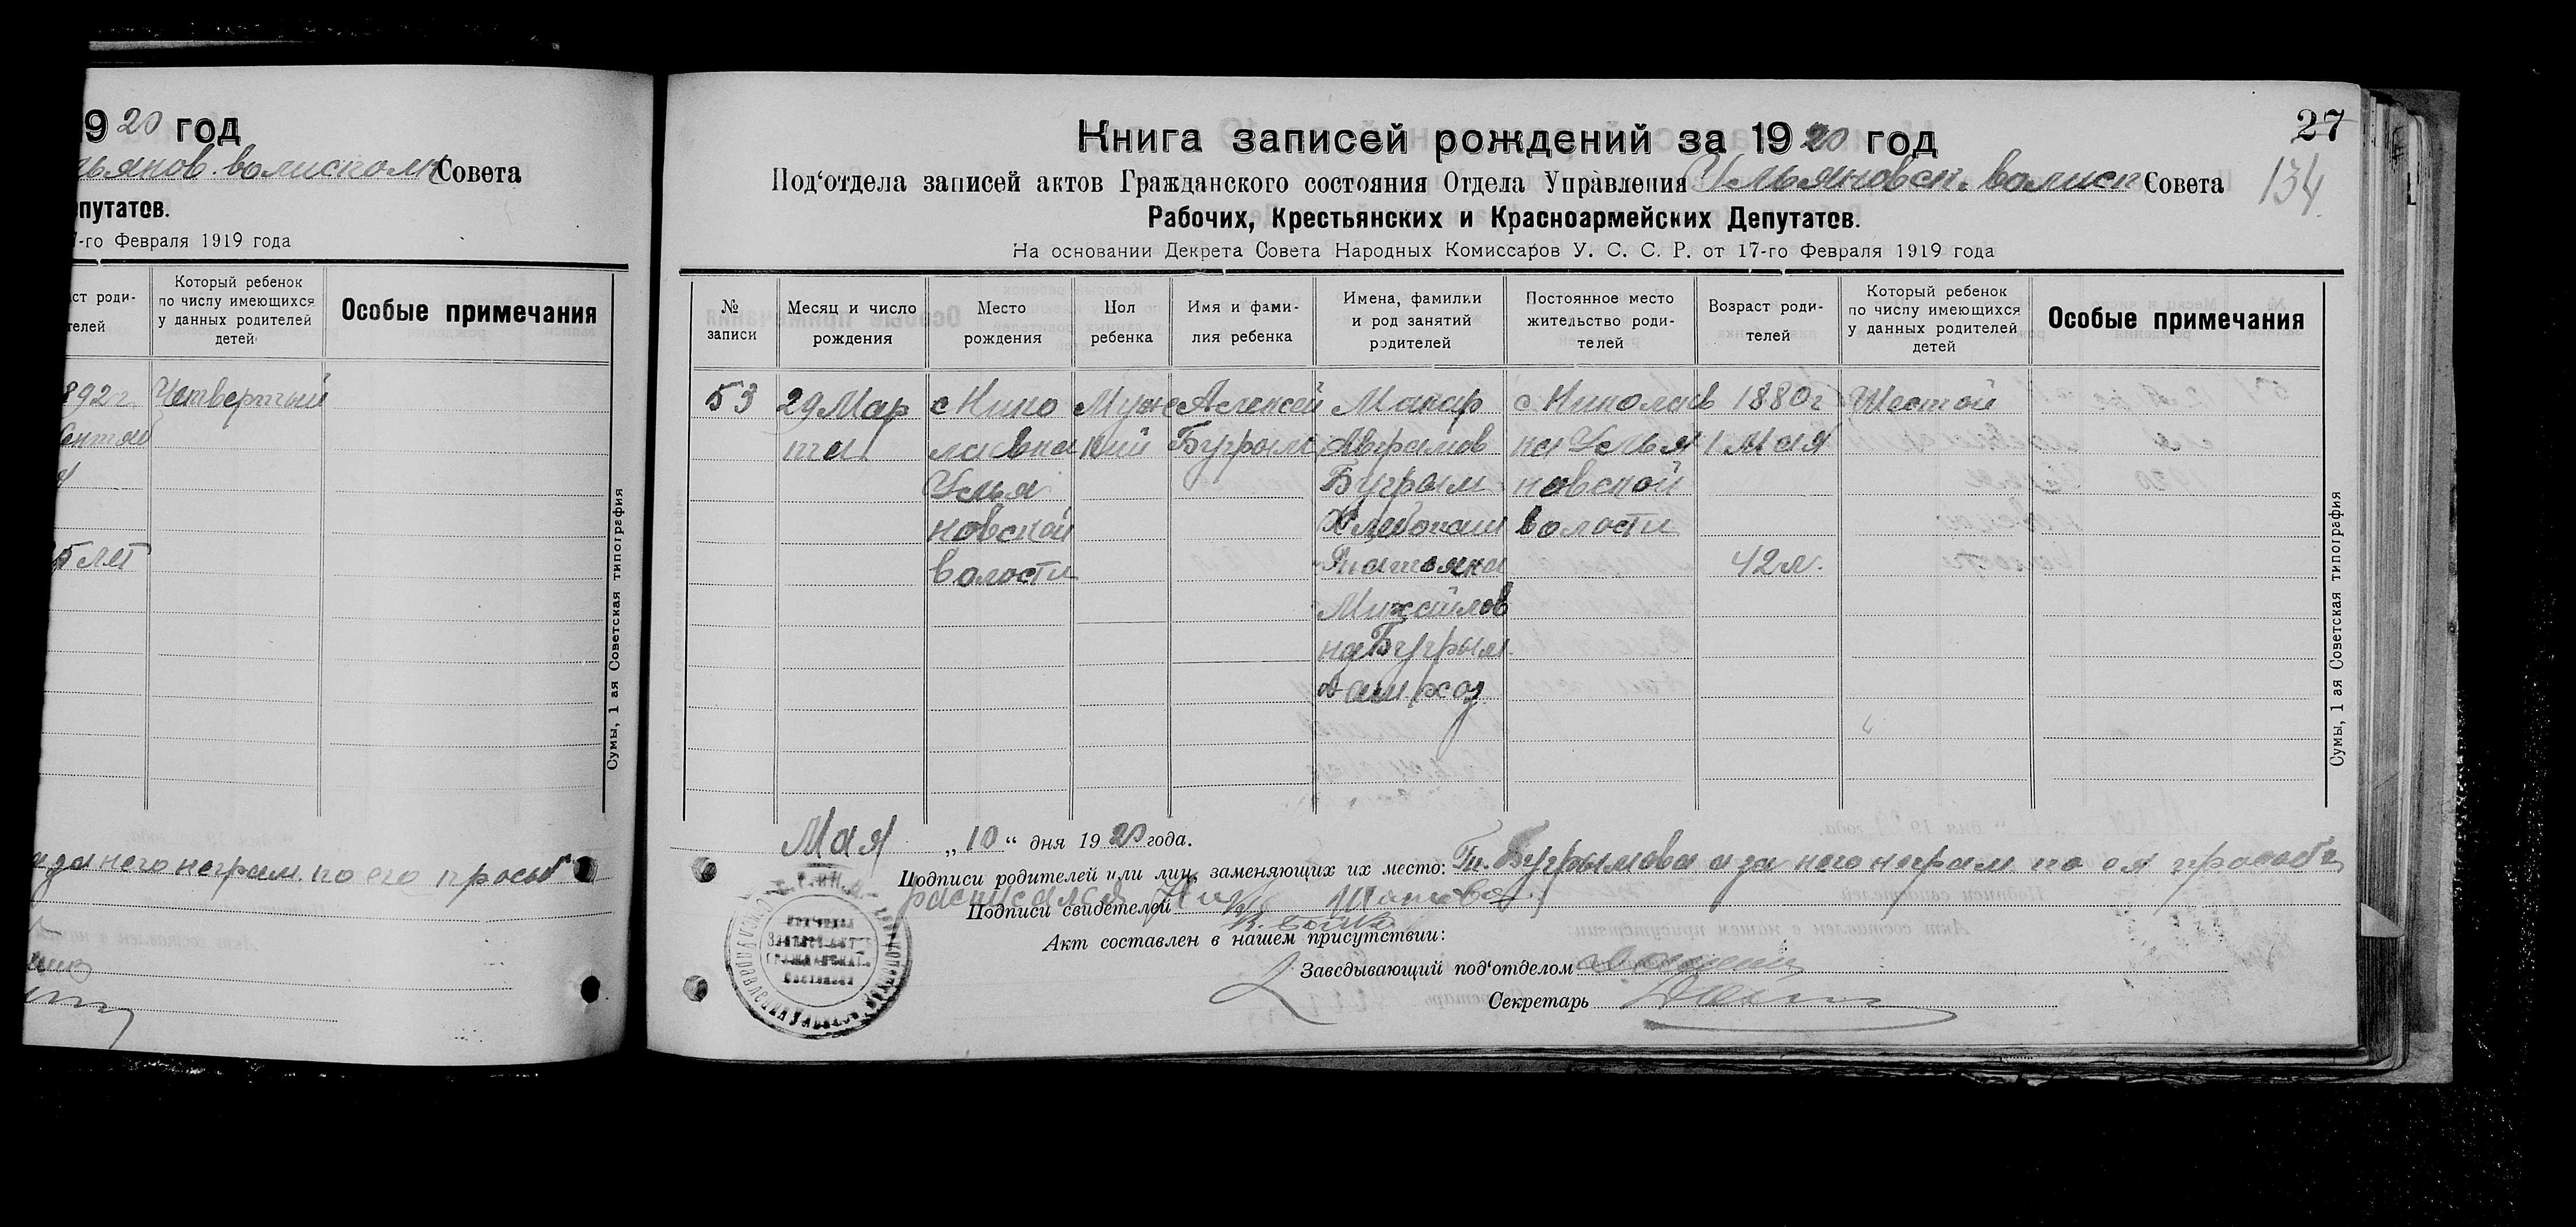 920 год
льянов. волисполк Совета
путатов.
7-го Февраля 1919 года
ст роди-
телей
Который ребенок
по числу имеющихся
у данных родителей
детей
Особые примечания
892 г. Четвертый
Сентяб
я
5 лет
Сумы, 1 ая Советская типография
и за него неграм. по его просьб
Книга записей рождений за 1920 год
27
134
Под'отдела записей актов Гражданского состояния Отдела Управления Ульяновск. волисп Совета
Рабочих, Крестьянских и Красноармейских Депутатов.
На основании Декрета Совета Народных Комиссаров У. С. С. Р. от 17-го Февраля 1919 года
№
записи
Месяц и число
рождения
Место
рождения
Пол
ребенка
Имя и фами-
лия ребенка
Имена, фамилии
и род занятий
родителей
Постоянное место
жительство роди-
телей
Возраст роди-
телей
Который ребенок
по числу имеющихся
у данных родителей
детей
Особые примечания
53
29 Мар
та
с Нико
лаевка
Улья
новской
волости
Мужс
кий
Алексей
Бугрым
Макар
Аврамов
Бугрым
Хлебопаш
Татьяна
Михайлов
на Бугрым
дом/хоз
с Николаев
ка Улья
новской
волости
1880 г
1 Мая
42 л.
Шестой
Сумы, 1 ая Советская типография
Мая „10“ дня 1920 года.
Подписи родителей или лиц, заменяющих их место: Т. Бугрымова а за него неграм. по ея просьбе
расписался
Подписи свидетелей
Акт составлен в нашем присутствии:
Заведывающий под'отделом
Секретарь